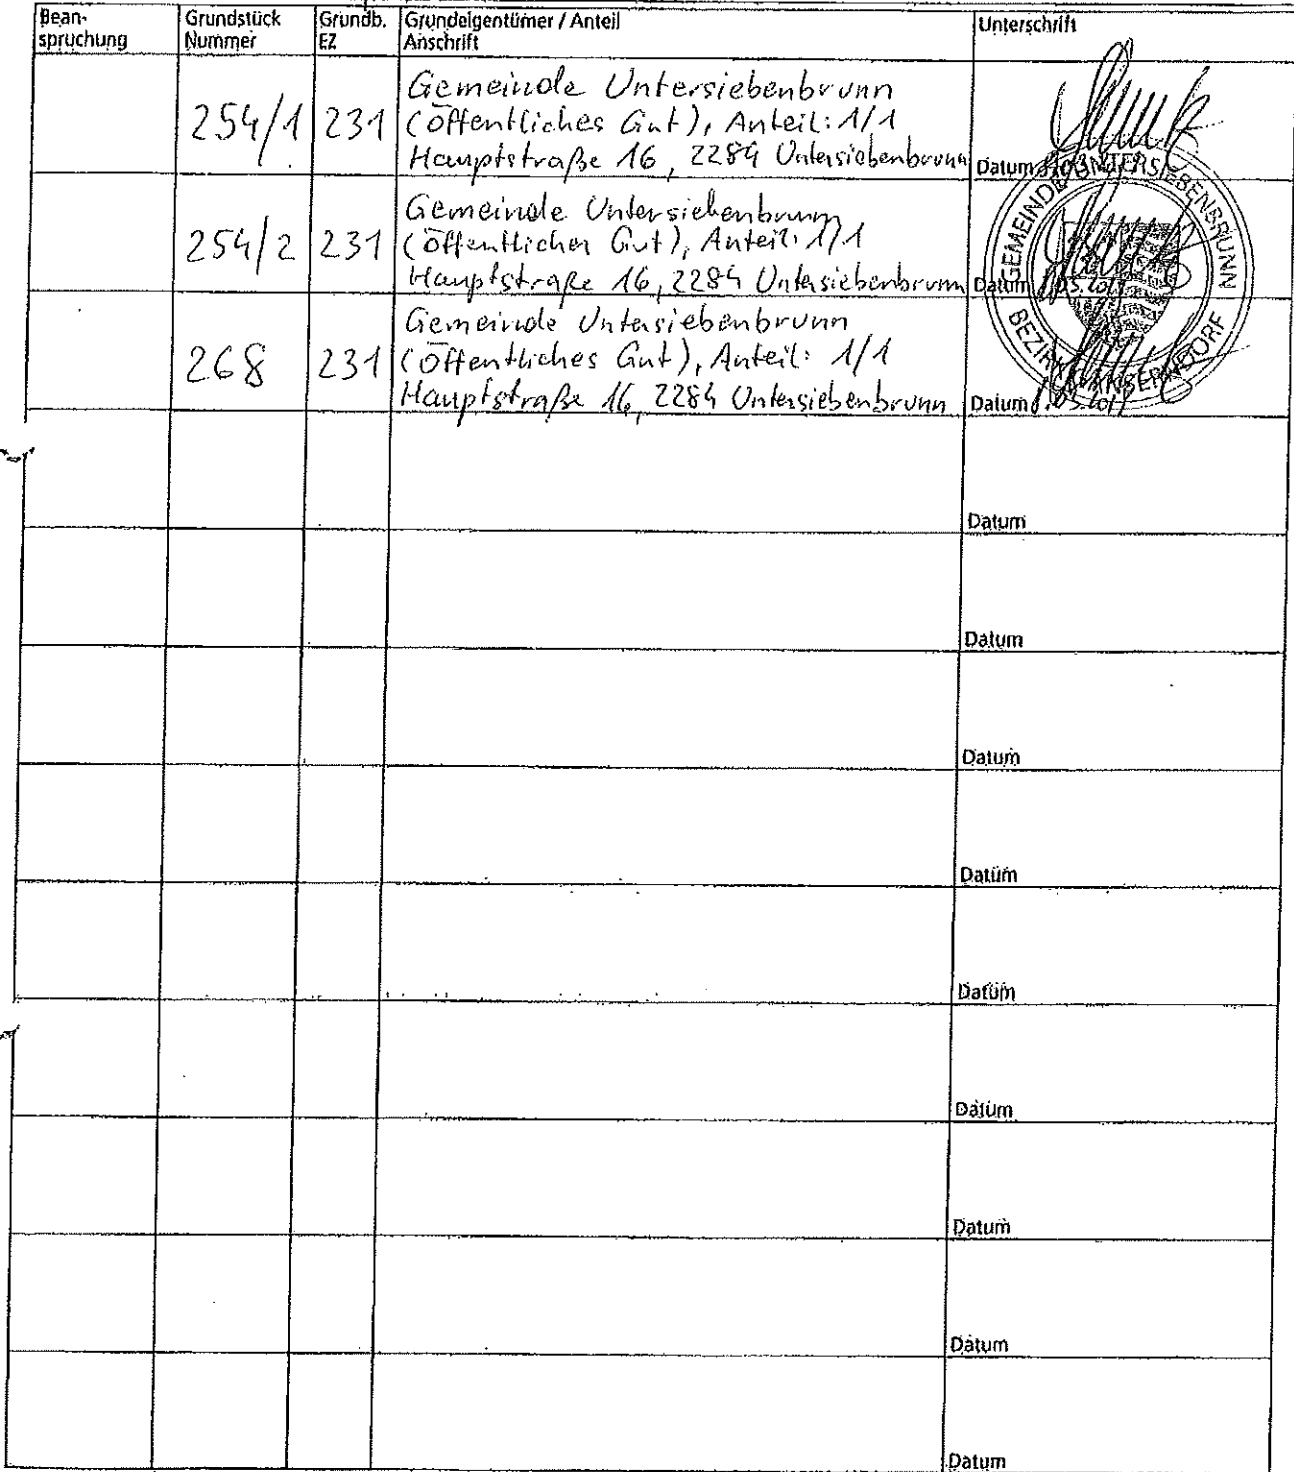 Bean-
spruchung
Grundstück
Nummer
Grundb.
EZ
Grundeigentümer / Anteil
Anschrift
Unterschrift
254/1
231
Gemeinde Untersiebenbrunn
(Öffentliches Gut), Anteil: 1/1
Hauptstraße 16, 2284 Untersiebenbrunn
Datum
254/2
231
Gemeinde Untersiebenbrunn
(Öffentliches Gut), Anteil: 1/1
Hauptstraße 16, 2284 Untersiebenbrunn
Datum
268
231
Gemeinde Untersiebenbrunn
(Öffentliches Gut), Anteil: 1/1
Hauptstraße 16, 2284 Untersiebenbrunn
Datum
GEMEINDE UNTERSIEBENBRUNN
BEZIRK GÄNSERNDORF
Datum
Datum
Datum
Datum
Datum
Datum
Datum
Datum
Datum